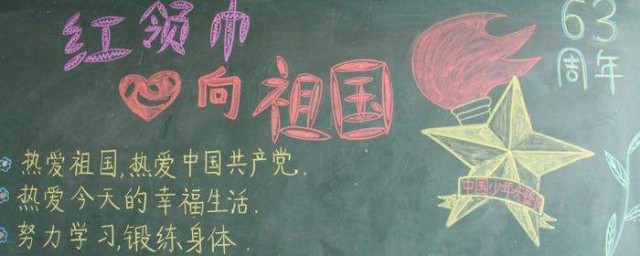 红领巾
心向祖国
63
周年
热爱祖国,热爱中国共产党.
热爱今天的幸福生活.
努力学习,锻练身体.
中国少年先锋队